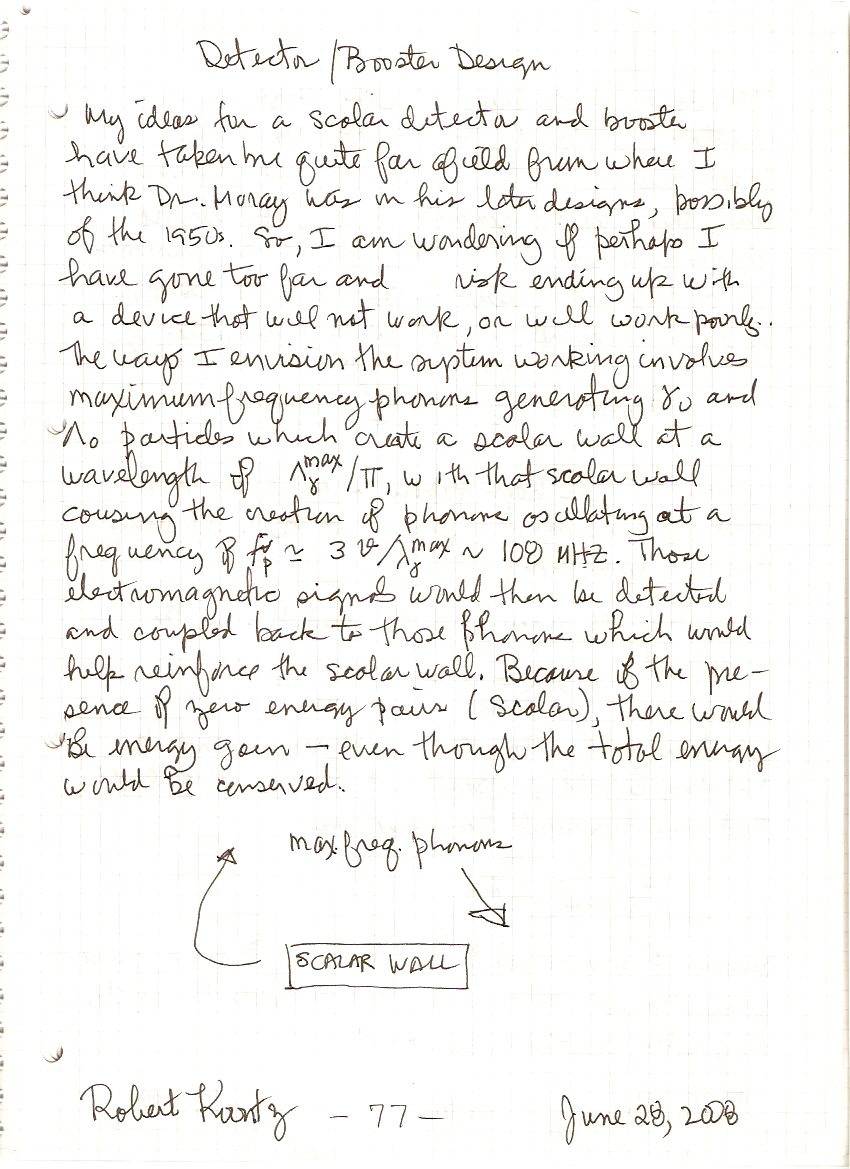 Detector/Booster Design
My ideas for a scalar detector and booster
have taken me quite far afield from where I
think Dr. Moray was in his later designs, possibly
of the 1950s. So, I am wondering if perhaps I
have gone too far and risk ending up with
a device that will not work, or will work poorly.
The way I envision the system working involves
maximum frequency phonons generating γ₀ and
Λ₀ particles which create a scalar wall at a
wavelength of Λγ^max/π, with that scalar wall
causing the creation of phonons oscillating at a
frequency of ≃ 3 v/λγ^max ~ 108 MHZ. Those
electromagnetic signals would then be detected
and coupled back to those phonons which would
help reinforce the scalar wall. Because of the pre-
sence of zero energy pairs (scalar), there would
be energy gain – even though the total energy
would be conserved.
max. freq. phonons
SCALAR WALL
Robert Koontz - 77 - June 28, 2008